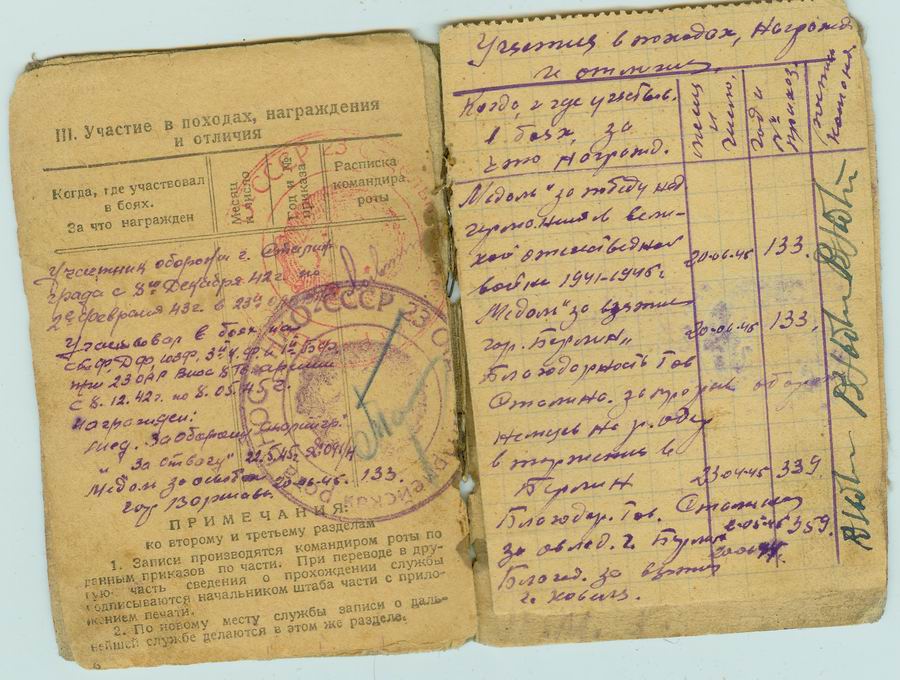 III. Участие в походах, награждения
и отличия
Когда, где участвовал
в боях.
За что награжден
Месяц
и число
Год и №
приказа
Расписка
командира
роты
Участник обороны г. Сталин
града с 8го Декабря 42г. по
2е февраля 43г. в 23й
Участвовал в боях на
с 8.12.42г. по 8.05.45г.
Награжден:
Мед. За оборону
" За отвагу" 22.5.45г.
Медаль за
20.06.45. 133.
гор Варшавы
ПРИМЕЧАНИЯ:
ко второму и третьему разделам
1. Записи производятся командиром роты по
данным приказов по части. При переводе в дру-
гую часть сведения о прохождении службы
подписываются начальником штаба части с прило-
жением печати.
2. По новому месту службы записи о даль-
нейшей службе делаются в этом же разделе.
6
Участия в походах, Награжд
и отличия
Когда, и где участвов.
в боях, за
что Награжд.
месяц
и
число,
год и
№
приказ.
Медаль "за победу над
германией в вели-
кой отечественной
войне 1941-1945г
20-06-45 133.
Медаль "за взятие
гор. Берлин"
20-06-45 133,
Благодарность Тов
Сталина. за прорыв оборон
немцев на р. Одер
в торжения в
Берлин 23-04-45 339
Благодар. Тов. Сталина
за овлад. г. Берлин
2-05-45 359.
Благод. за взятие
г.